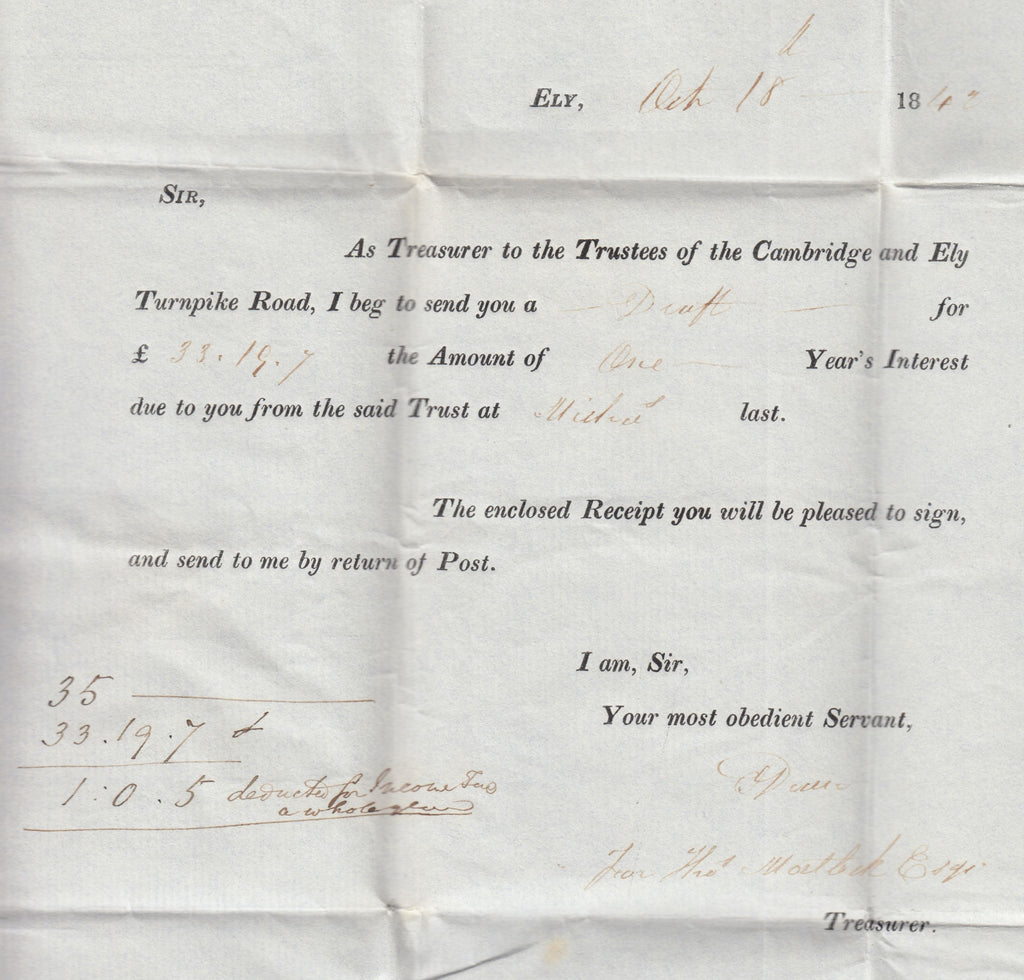 ELY, Oct 18 184
SIR,
As Treasurer to the Trustees of the Cambridge and Ely
Turnpike Road, I beg to send you a — Draft — for
£ 33.19.7 the Amount of One — Year's Interest
due to you from the said Trust at Michs last.
The enclosed Receipt you will be pleased to sign,
and send to me by return of Post.
I am, Sir,
Your most obedient Servant,
35 —
33.19.7
1:0.5 deducted for Income Tax
a whole year
For Thos Mortlock Esqr
Treasurer.